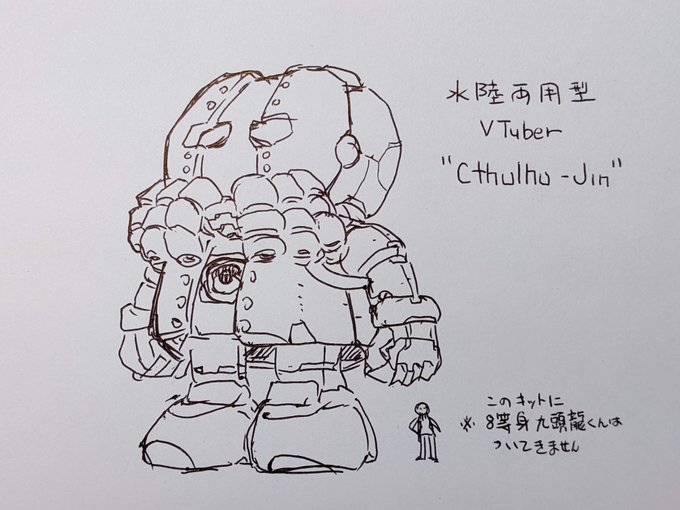 水陸両用型
VTuber
"Cthulhu-Jin"
このキットに
※ 8等身九頭龍くんは
ついてきません